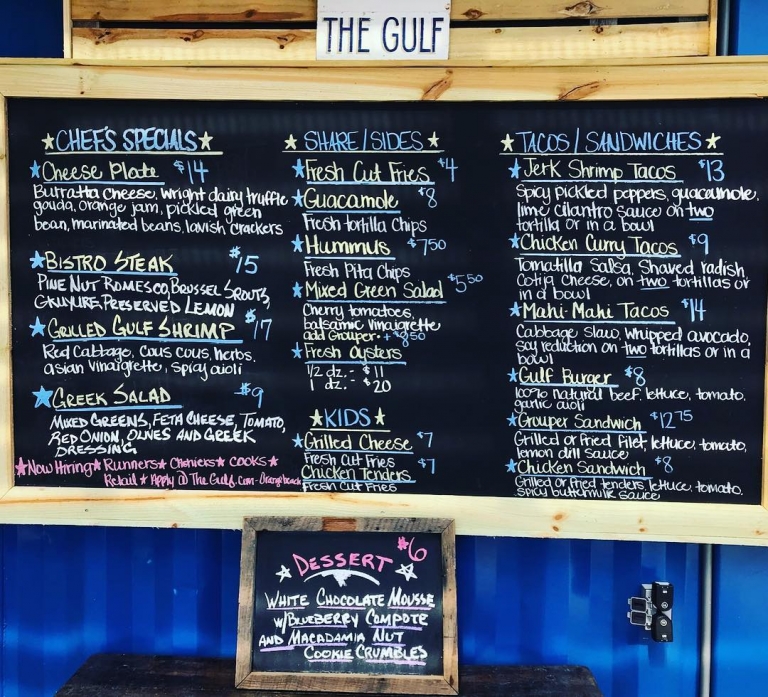 THE GULF
★CHEF'S SPECIALS★
★Cheese Plate $14
Burratta cheese, wright dairy truffle
gouda, orange jam, pickled green
bean, marinated beans, lavish crackers
★BISTRO STEAK $15
PINE NUT ROMESCO, BRUSSEL SPROUTS,
GRUYURE, PRESERVED LEMON
★GRILLED GULF SHRIMP $17
Red Cabbage, cous cous, herbs,
asian vinaigrette, spicy aioli
★GREEK SALAD $9
MIXED GREENS, FETA CHEESE, TOMATO,
RED ONION, OLIVES AND GREEK
DRESSING
★NOW Hiring★ Runners★ Cashiers★ COOKS★
Retail ★ Apply @ The Gulf.com - Orange beach
★SHARE/SIDES★
★Fresh Cut Fries $4
★Guacamole $8
Fresh tortilla Chips
★Hummus $7.50
Fresh Pita Chips
★Mixed Green Salad $5.50
Cherry tomatoes,
balsamic vinaigrette
add Grouper · + $8.50
★Fresh Oysters
1/2 dz. - $11
1 dz. - $20
★KIDS★
★Grilled Cheese $7
Fresh Cut Fries
Chicken Tenders $7
Fresh Cut Fries
★TACOS/SANDWICHES★
★Jerk Shrimp Tacos $13
Spicy pickled peppers, guacamole,
lime cilantro sauce on two
tortilla or in a bowl
★Chicken Curry Tacos $9
Tomatilla Salsa, Shaved radish,
Cotija Cheese, on two tortillas or
in a bowl
★Mahi-Mahi Tacos $14
Cabbage Slaw, whipped avocado,
soy reduction on two tortillas or in a
bowl
★Gulf Burger $8
100% natural beef, lettuce, tomato,
garlic aioli
★Grouper Sandwich $12.75
Grilled or fried filet, lettuce, tomato,
lemon dill sauce
★Chicken Sandwich $8
Grilled or fried tenders, lettuce, tomato,
spicy buttermilk sauce
DESSERT $6
WHITE CHOCOLATE MOUSSE
W/BLUEBERRY COMPOTE
AND MACADAMIA NUT
COOKIE CRUMBLES